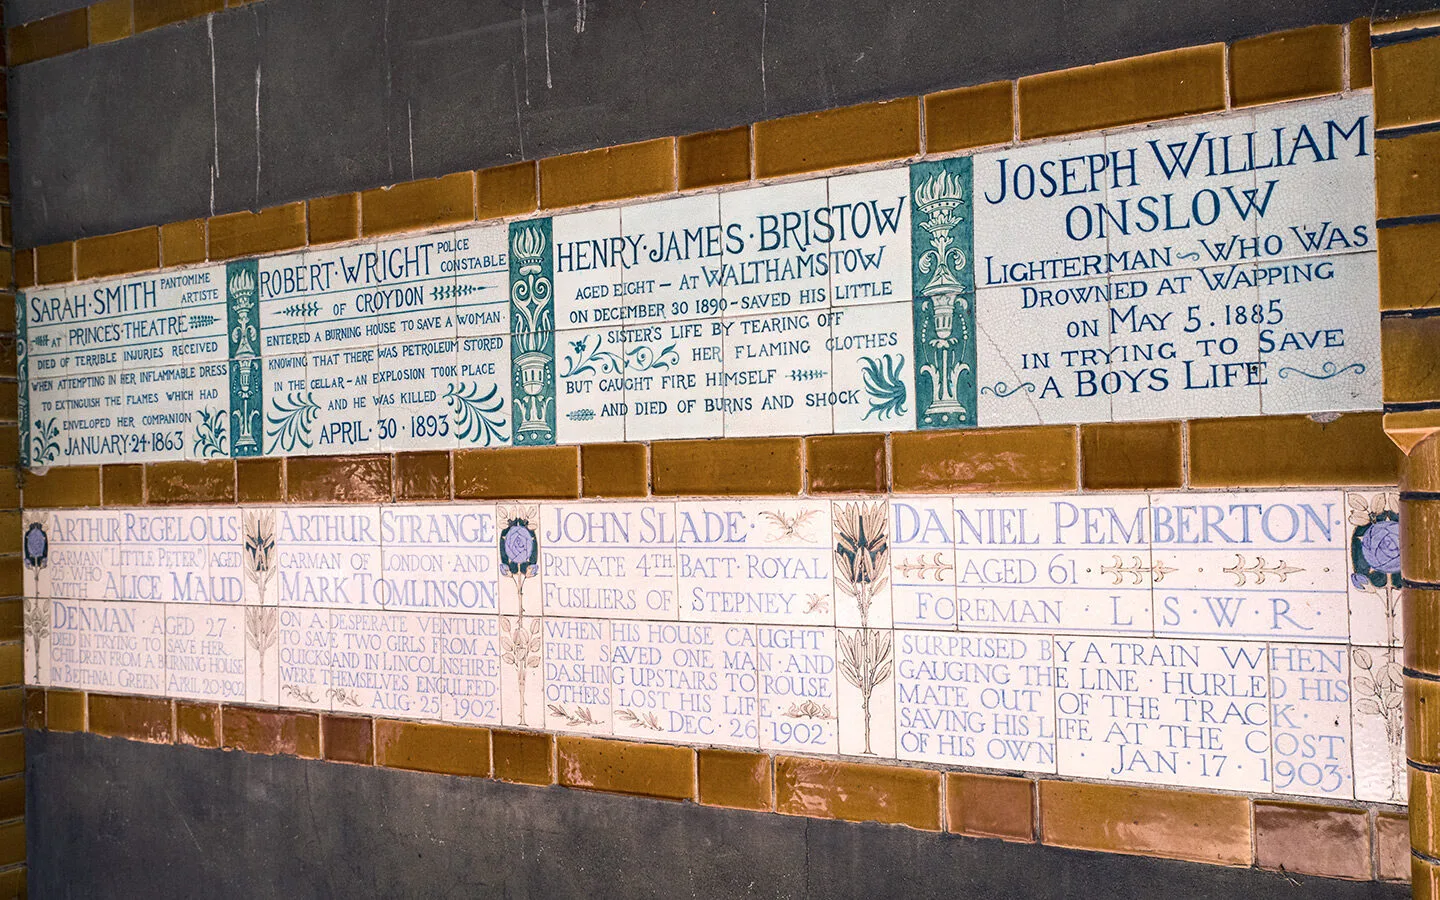 SARAH·SMITH PANTOMIME ARTISTE
AT PRINCE'S·THEATRE
DIED OF TERRIBLE INJURIES RECEIVED
WHEN ATTEMPTING IN HER INFLAMMABLE DRESS
TO EXTINGUISH THE FLAMES WHICH HAD
ENVELOPED HER COMPANION
JANUARY·24·1863
ROBERT·WRIGHT POLICE CONSTABLE
OF CROYDON
ENTERED A BURNING HOUSE TO SAVE A WOMAN·
KNOWING THAT THERE WAS PETROLEUM STORED
IN THE CELLAR – AN EXPLOSION TOOK PLACE
AND HE WAS KILLED
APRIL·30·1893
HENRY·JAMES·BRISTOW
AGED EIGHT – AT WALTHAMSTOW
ON DECEMBER 30 1890 – SAVED HIS LITTLE
SISTER'S LIFE BY TEARING OFF
HER FLAMING CLOTHES
BUT CAUGHT FIRE HIMSELF
AND DIED OF BURNS AND SHOCK
JOSEPH WILLIAM
ONSLOW
LIGHTERMAN ~ WHO WAS
DROWNED AT WAPPING
ON MAY 5·1885
IN TRYING TO SAVE
A BOYS LIFE
ARTHUR REGELOUS
CARMAN ("LITTLE PETER") AGED
25·WHO
WITH ALICE MAUD
DENMAN·AGED 27
DIED IN TRYING TO SAVE HER
CHILDREN FROM A BURNING HOUSE
IN BETHNAL GREEN· APRIL 20·1902
ARTHUR STRANGE·
CARMAN OF LONDON·AND
MARK TOMLINSON·
ON A DESPERATE VENTURE
TO SAVE TWO GIRLS FROM A
QUICKSAND IN LINCOLNSHIRE
WERE THEMSELVES ENGULFED·
AUG·25·1902
JOHN SLADE·
PRIVATE 4TH BATT·ROYAL
FUSILIERS OF STEPNEY
WHEN HIS HOUSE CAUGHT
FIRE SAVED ONE MAN·AND
DASHING UPSTAIRS TO ROUSE
OTHERS LOST HIS LIFE·
DEC·26·1902·
DANIEL PEMBERTON·
AGED 61
FOREMAN L·S·W·R·
SURPRISED BY A TRAIN WHEN
GAUGING THE LINE·HURLED HIS
MATE OUT OF THE TRACK·
SAVING HIS LIFE AT THE COST
OF HIS OWN· JAN·17·1903·